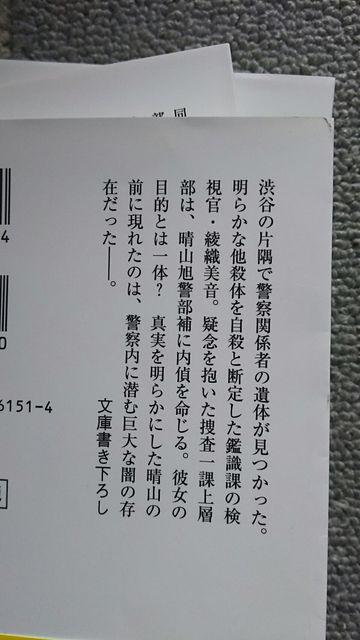 渋谷の片隅で警察関係者の遺体が見つかった。
明らかな他殺体を自殺と断定した鑑識課の検
視官・綾織美音。疑念を抱いた捜査一課上層
部は、晴山旭警部補に内偵を命じる。彼女の
目的とは一体？　真実を明らかにした晴山の
前に現れたのは、警察内に潜む巨大な闇の存
在だった――。
文庫書き下ろし
6151-4
4
0
同